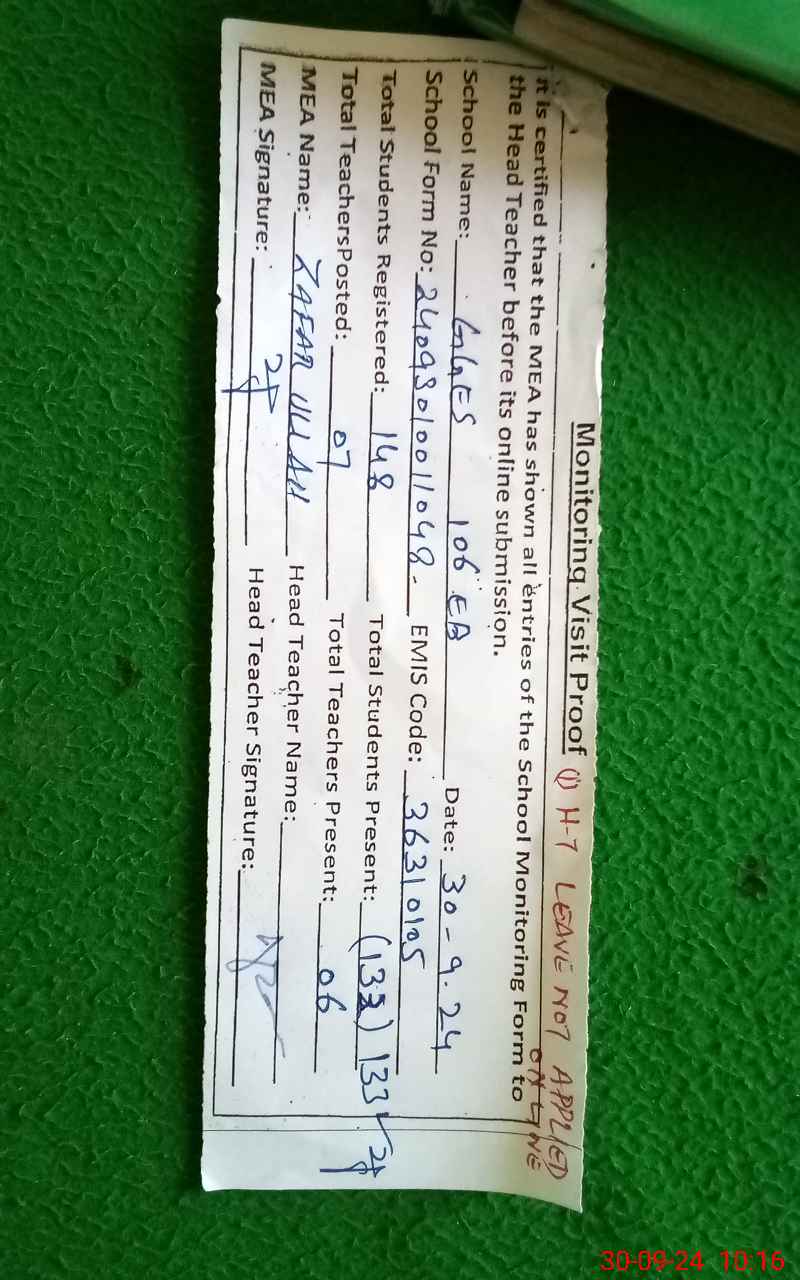 Monitoring Visit Proof ① H-T LEAVE NOT APPLIED
ONLINE
It is certified that the MEA has shown all entries of the School Monitoring Form to
the Head Teacher before its online submission.
School Name: GGES 106 EB Date: 30-9-24
School Form No: 24093010011048 EMIS Code: 36310105
Total Students Registered: 148 Total Students Present: (133) 133 ✓
Total TeachersPosted: 07 Total Teachers Present: 06
MEA Name: ZAFAR ULLAH Head Teacher Name:
MEA Signature: Head Teacher Signature:
30-09-24 10:16